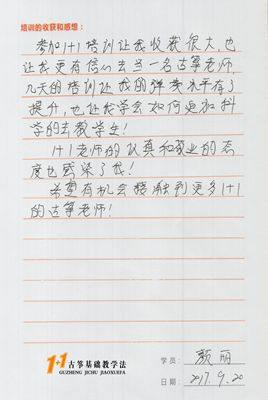 培训的收获和感想：
参加1+1培训让我收获很大，也
让我更有信心去当一名古筝老师，
几天的培训让我的弹奏水平有了
提升，也让我学会如何更加科
学的去教学生！
1+1老师的认真和敬业的态
度也感染了我！
希望有机会接触到更多1+1
的古筝老师！
1+1 古筝基础教学法
GUZHENG JICHU JIAOXUEFA
学员：颜丽
日期：2017.9.20